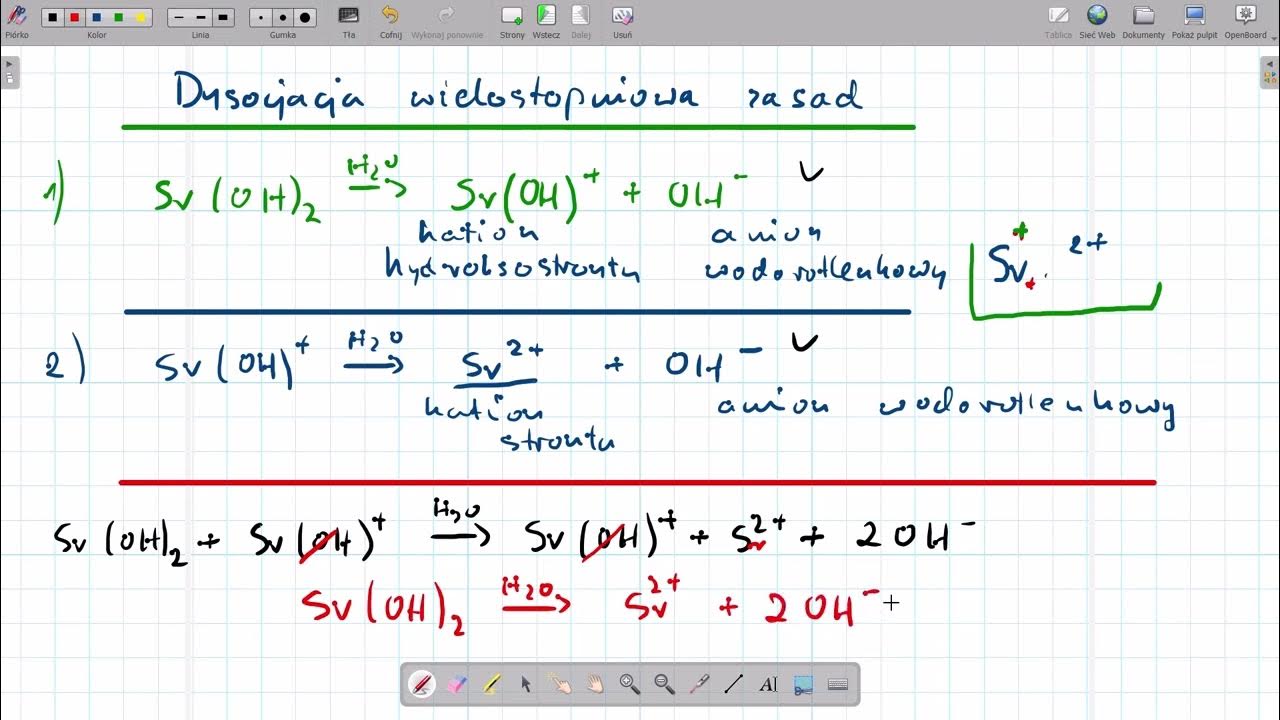 Piórko Kolor Linia Gumka Tła Cofnij Wykonaj ponownie Strony Wstecz Dalej Usuń Tablica Sieć Web Dokumenty Pokaż pulpit OpenBoard
Dysocjacja wielostopniowa zasad
1) Sr(OH)₂ H₂O→ Sr(OH)⁺ + OH⁻ ✓
kation anion
hydroksostrontu wodorotlenkowy
Sr 2+
2) Sr(OH)⁺ H₂O→ Sr²⁺ + OH⁻ ✓
kation anion wodorotlenkowy
strontu
Sr(OH)₂ + Sr(OH)⁺ H₂O→ Sr(OH)⁺ + Sr²⁺ + 2OH⁻
Sr(OH)₂ H₂O→ Sr²⁺ + 2OH⁻
AI